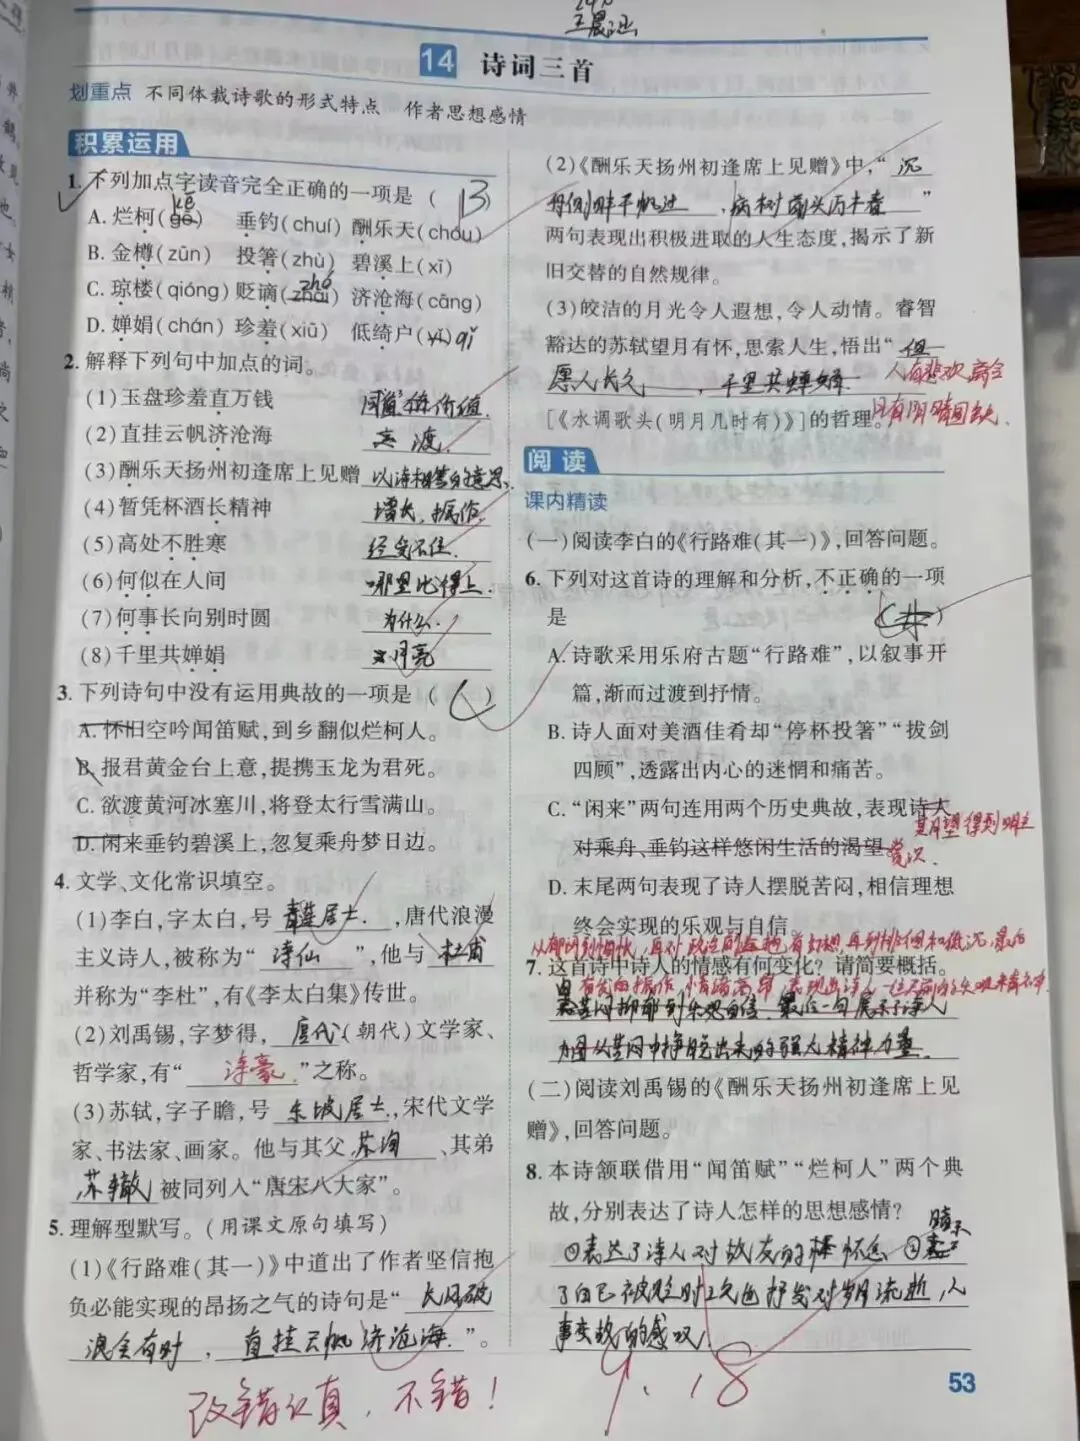 王晨涵
14 诗词三首
划重点 不同体裁诗歌的形式特点 作者思想感情
积累运用
1. 下列加点字读音完全正确的一项是 ( B )
kē
A. 烂柯(gē) 垂钓(chuí) 酬乐天(chóu)
B. 金樽(zūn) 投箸(zhù) 碧溪上(xī)
zhé
C. 琼楼(qióng) 贬谪(zhāi) 济沧海(cāng)
D. 婵娟(chán) 珍羞(xiū) 低绮户(yǐ) qǐ
2. 解释下列句中加点的词。
(1)玉盘珍羞直万钱 同“值”价值.
(2)直挂云帆济沧海 渡.
(3)酬乐天扬州初逢席上见赠 以诗相答的意思.
(4)暂凭杯酒长精神 增长,振作.
(5)高处不胜寒 经受不住.
(6)何似在人间 哪里比得上.
(7)何事长向别时圆 为什么.
(8)千里共婵娟 月亮
3. 下列诗句中没有运用典故的一项是 ( C )
A. 怀旧空吟闻笛赋,到乡翻似烂柯人。
B. 报君黄金台上意,提携玉龙为君死。
C. 欲渡黄河冰塞川,将登太行雪满山。
D. 闲来垂钓碧溪上,忽复乘舟梦日边。
4. 文学、文化常识填空。
(1)李白,字太白,号 青莲居士. ,唐代浪漫
主义诗人,被称为“ 诗仙 ”,他与 杜甫
并称为“李杜”,有《李太白集》传世。
(2)刘禹锡,字梦得, 唐代 (朝代)文学家、
哲学家,有“ 诗豪 ”之称。
(3)苏轼,字子瞻,号 东坡居士 ,宋代文学
家、书法家、画家。他与其父 苏洵 、其弟
苏辙 被同列入“唐宋八大家”。
5. 理解型默写。(用课文原句填写)
(1)《行路难(其一)》中道出了作者坚信抱
负必能实现的昂扬之气的诗句是“ 长风破
浪会有时 , 直挂云帆济沧海. ”。
改错认真,不错!
(2)《酬乐天扬州初逢席上见赠》中,“ 沉
舟侧畔千帆过 , 病树前头万木春 ”
两句表现出积极进取的人生态度,揭示了新
旧交替的自然规律。
(3)皎洁的月光令人遐想,令人动情。睿智
豁达的苏轼望月有怀,思索人生,悟出“ 但
愿人长久 , 千里共婵娟. 人有悲欢离合
[《水调歌头(明月几时有)》]的哲理。 月有阴晴圆缺.
阅读
课内精读
(一)阅读李白的《行路难(其一)》,回答问题。
6. 下列对这首诗的理解和分析,不正确的一项
是 ( )
A. 诗歌采用乐府古题“行路难”,以叙事开
篇,渐而过渡到抒情。
B. 诗人面对美酒佳肴却“停杯投箸”“拔剑
四顾”,透露出内心的迷惘和痛苦。
C. “闲来”两句连用两个历史典故,表现诗人
期望得到明主
对乘舟、垂钓这样悠闲生活的渴望。 赏识.
D. 末尾两句表现了诗人摆脱苦闷,相信理想
终会实现的乐观与自信。
7. 这首诗中诗人的情感有何变化?请简要概括。
苦闷抑郁到乐观自信. 最后一句展示了诗人
力图从苦闷中挣脱出来的强大精神力量.
(二)阅读刘禹锡的《酬乐天扬州初逢席上见
赠》,回答问题。
8. 本诗颔联借用“闻笛赋”“烂柯人”两个典
故,分别表达了诗人怎样的思想感情?
暗示
①表达了诗人对故友的怀念 ②
了自己被贬时之久也抒发对岁月流逝,人
事变故的感叹.
9.18
53